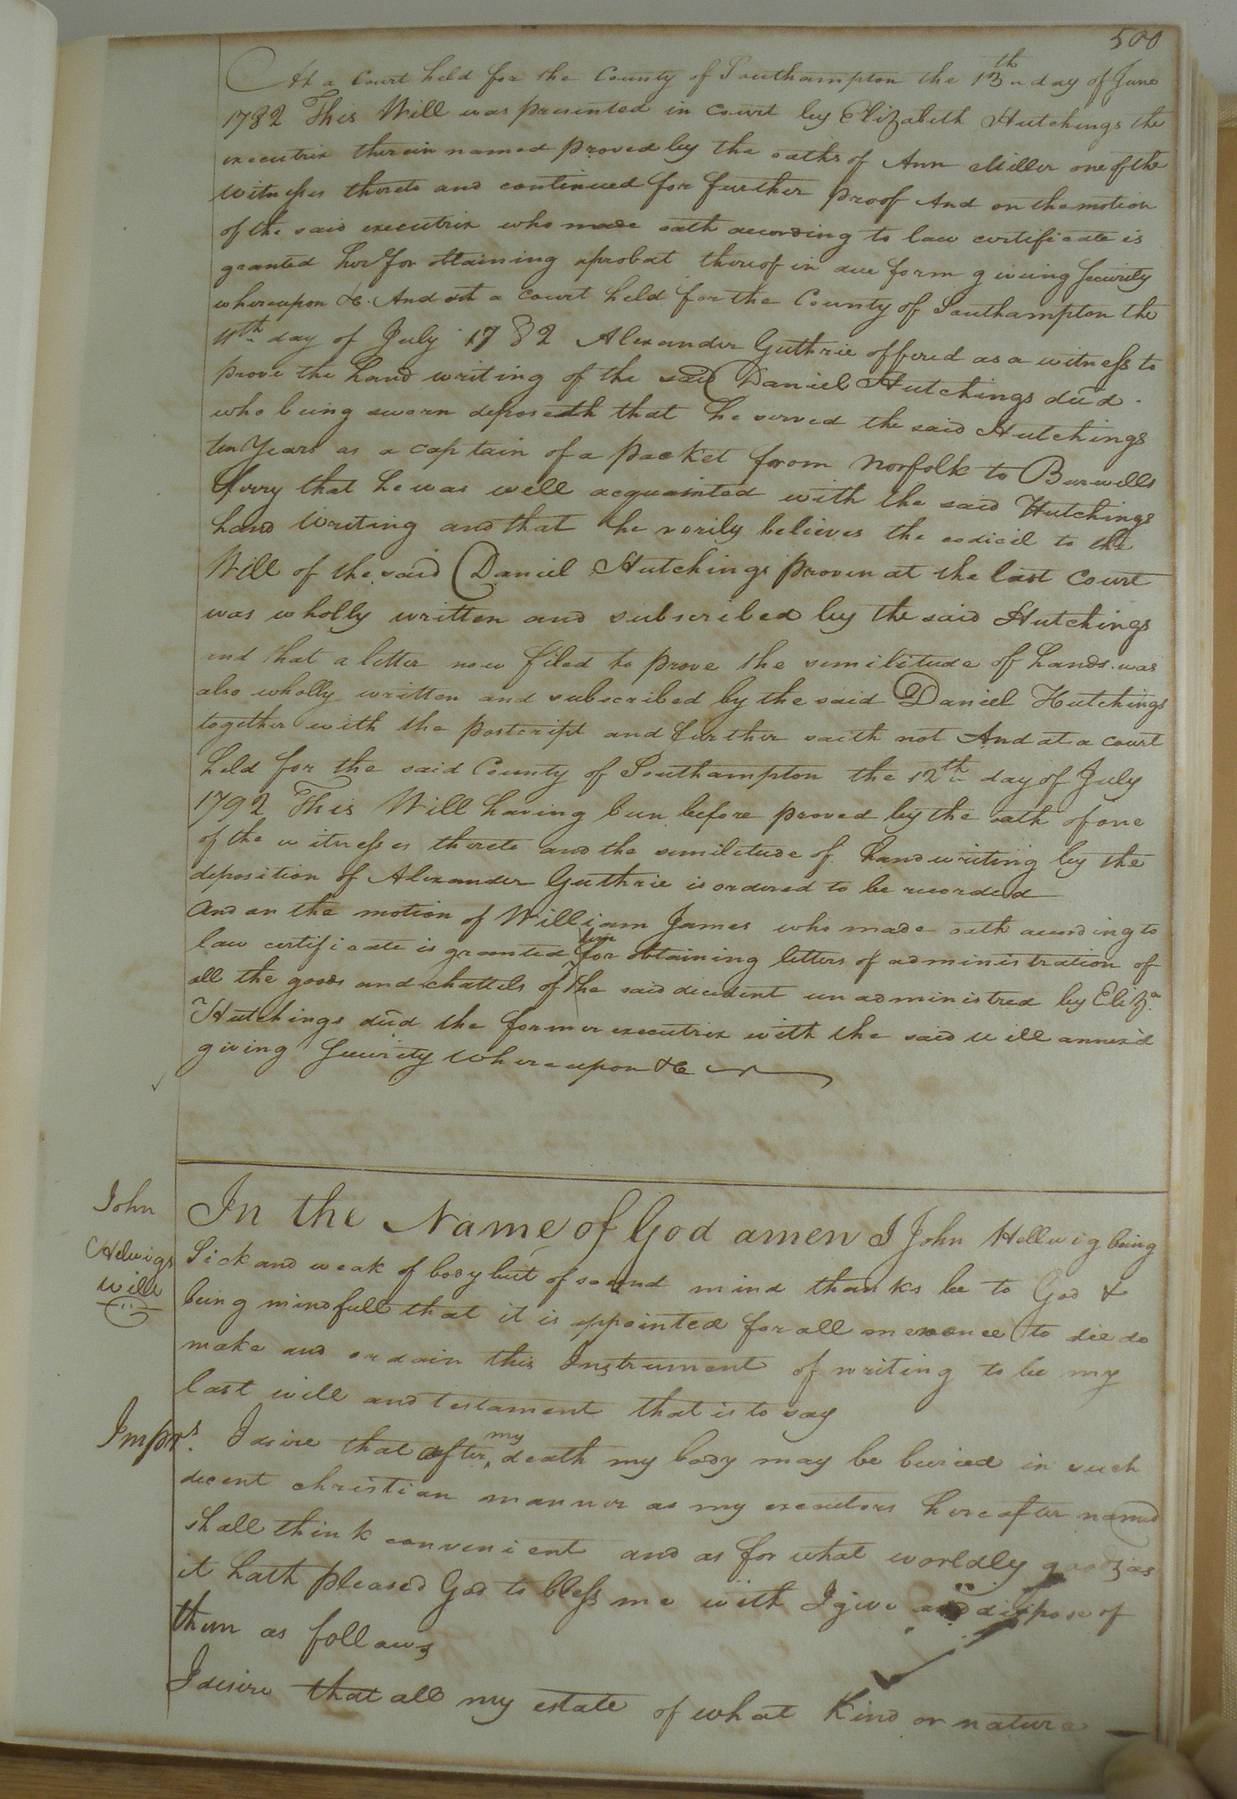 500
At a Court held for the County of Southampton the 13th day of June
1782 This Will was presented in court by Elizabeth Hutchings the
executrix therein named proved by the oaths of Ann Miller one of the
Witnesses thereto and continued for further proof And on the motion
of the said executrix who made oath according to law certificate is
granted her for obtaining aprobat thereof in due form giving Security
whereupon &c. And at a court held for the County of Southampton the
11th day of July 1782 Alexander Guthrie offered as a witness to
prove the hand writing of the said Daniel Hutchings dec'd.
who being sworn deposeth that he served the said Hutchings
ten Years as a captain of a packet from Norfolk to Burwells
ferry that he was well acquainted with the said Hutchings
hand Writing and that he verily believes the codicil to the
Will of the said Daniel Hutchings proven at the last Court
was wholly written and subscribed by the said Hutchings
and that a letter now filed to prove the similitude of hands was
also wholly written and subscribed by the said Daniel Hutchings
together with the postcript and further saith not And at a court
held for the said County of Southampton the 12th day of July
1792 This Will having been before proved by the oath of one
of the witnesses thereto and the similitude of handwriting by the
deposition of Alexander Guthrie is ordered to be recorded
And on the motion of William James who made oath according to
law certificate is granted him for obtaining letters of administration of
all the goods and chattels of the said decedent unadministred by Eliza
Hutchings dec'd the former executrix with the said will annex'd
giving Security Whereupon &c
John
Helwigs
Will
In the Name of God amen I John Hellwig being
Sick and weak of body but of sound mind thanks be to God &
being mindfull that it is appointed for all men once to die do
make and ordain this Instrument of writing to be my
last will and testament that is to say
Imprs. I desire that after my death my body may be buried in such
decent christian manner as my executors hereafter named
shall think convenient and as for what worldly goods as
it hath pleased God to bless me with I give and dispose of
them as follows
I desire that all my estate of what Kind or nature